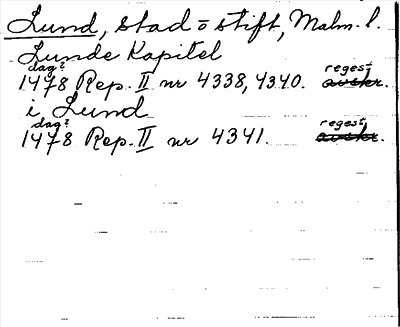 Lund, stad o stift, Malm. l.
Lunde Kapitel
dag? regest
1478 Rep. II nr 4338, 4340. avskr.
i Lund
dag? regest,
1478 Rep. II nr 4341. avskr.